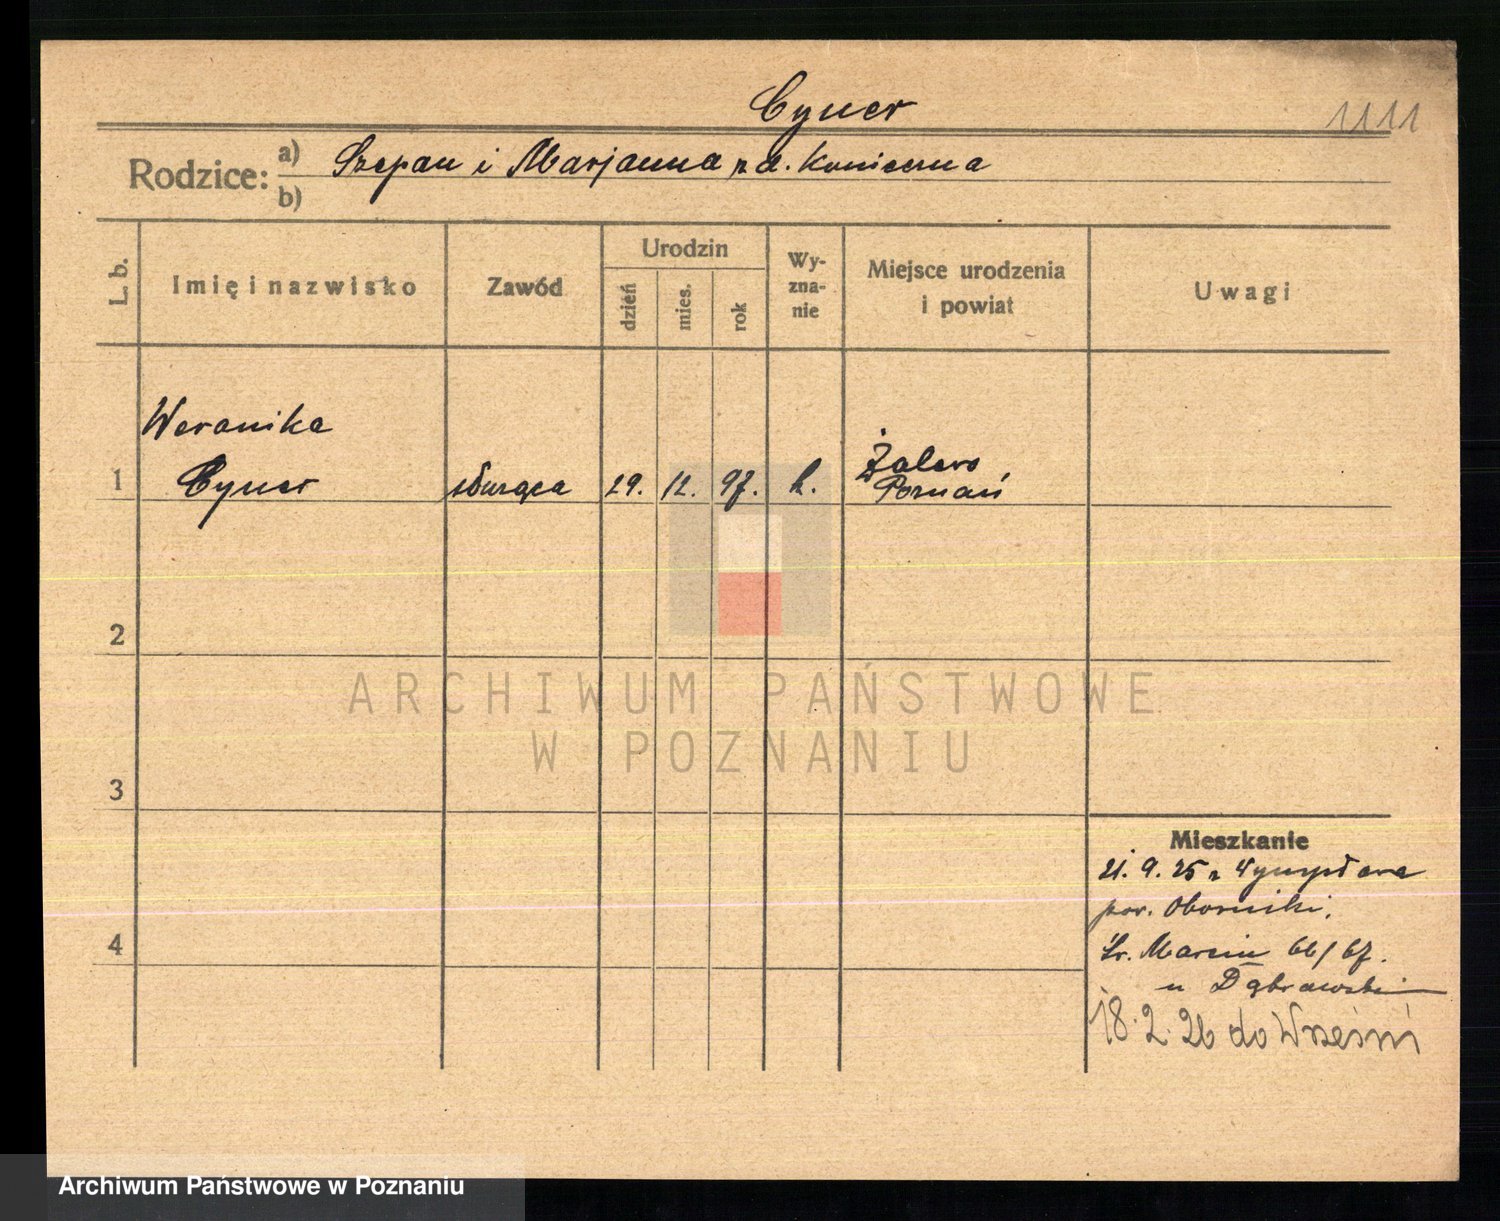 Cyner
1111
Rodzice: a) Szepan i Marjanna z d. Konieczna
b)
L. b. Imię i nazwisko Zawód Urodzin dzień mies. rok Wyznanie Miejsce urodzenia i powiat Uwagi
Weronika
1 Cyner służąca 29. 12. 97. k. Żalewo,
Poznań
2
ARCHIWUM PAŃSTWOWE
W POZNANIU
3
Mieszkanie
21. 9. 25 z
pow. Oborniki,
4 Św. Marcin 66/67.
u Dąbrowski
18. 2. 26 do Wrześni
Archiwum Państwowe w Poznaniu